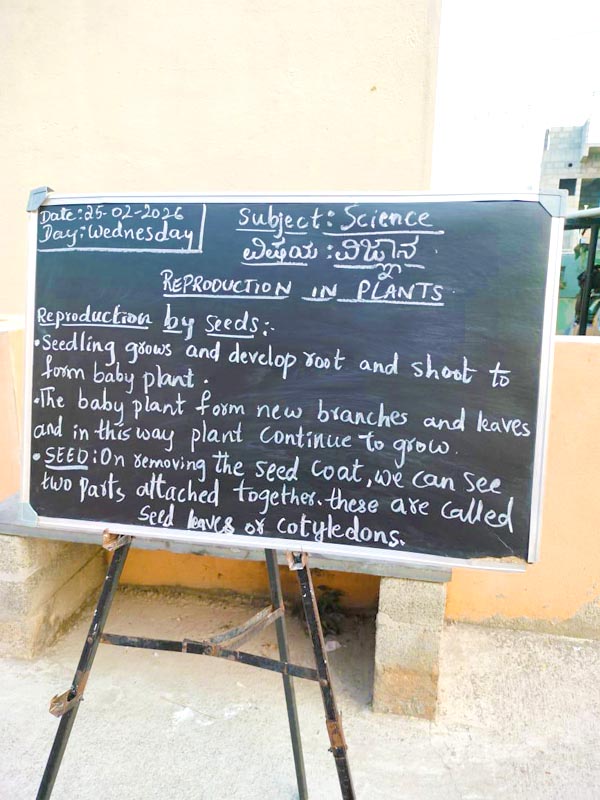 Date: 25-02-2026
Day: Wednesday
Subject: Science
ವಿಷಯ : ವಿಜ್ಞಾನ
REPRODUCTION IN PLANTS
Reproduction by Seeds:-
• Seedling grows and develop root and shoot to
form baby plant.
• The baby plant form new branches and leaves
and in this way plant continue to grow.
• SEED: On removing the seed coat, we can see
two parts attached together. these are called
Seed leaves or cotyledons.